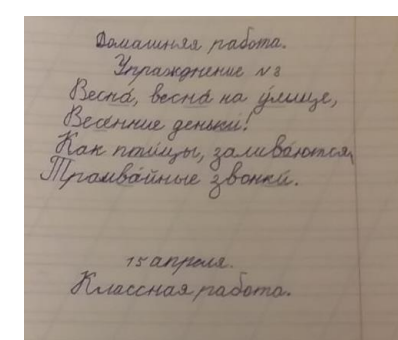 Домашняя работа.
Упражнение №3
Весна́, весна́ на у́лице,
Весе́нние деньки́!
Как пти́цы, залива́ются,
Трамва́йные звонки́.
15 апреля.
Классная работа.